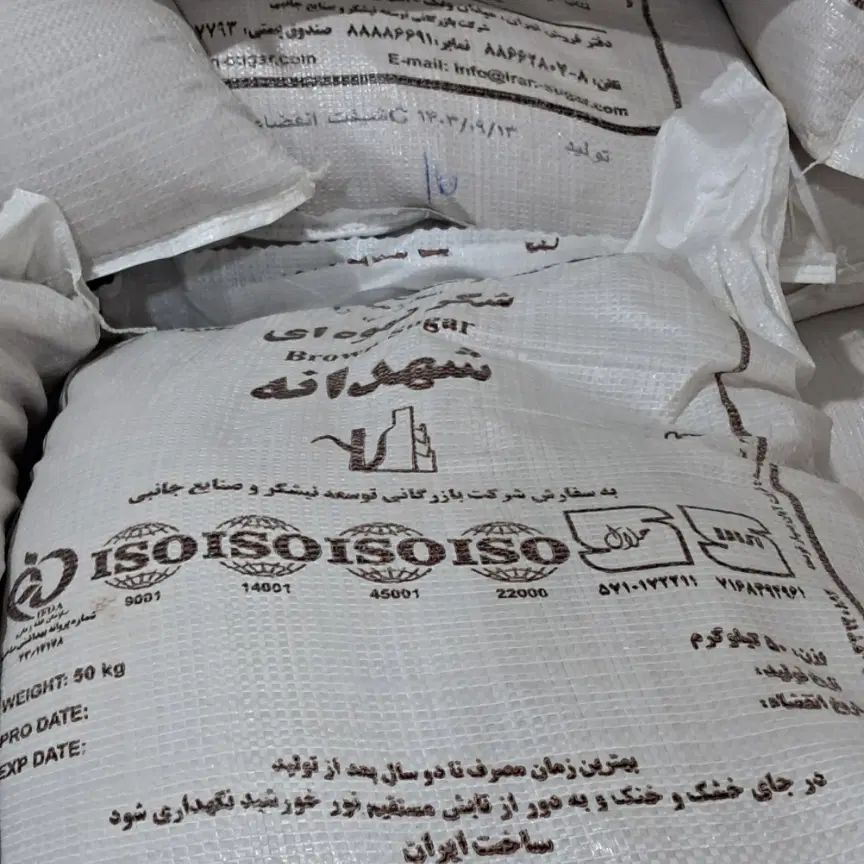 شرکت بازرگانی توسعه نیشکر و صنایع جانبی
دفتر فروش تهران: میدان ونک
تلفن: ۸-۸۸۶۶۲۸۰۲ نمابر: ۸۸۸۸۶۶۹۱ صندوق پستی:
E-mail: info@iran-sugar.com
تولید ۱۴۰۳/۰۹/۱۳ C شیفت انقضاء
شکر
قهوه ای
Brown Sugar
شهدانه
به سفارش شرکت بازرگانی توسعه نیشکر و صنایع جانبی
ISO ISO ISO ISO حلال
9001 14001 45001 22000
IFDA
سازمان غذا و دارو
شماره پروانه بهداشتی ساخت
WEIGHT: 50 kg
PRO DATE:
EXP DATE:
وزن: ۵۰ کیلوگرم
تاریخ تولید:
تاریخ انقضاء:
بهترین زمان مصرف تا دو سال بعد از تولید
در جای خشک و خنک و به دور از تابش مستقیم نور خورشید نگهداری شود
ساخت ایران